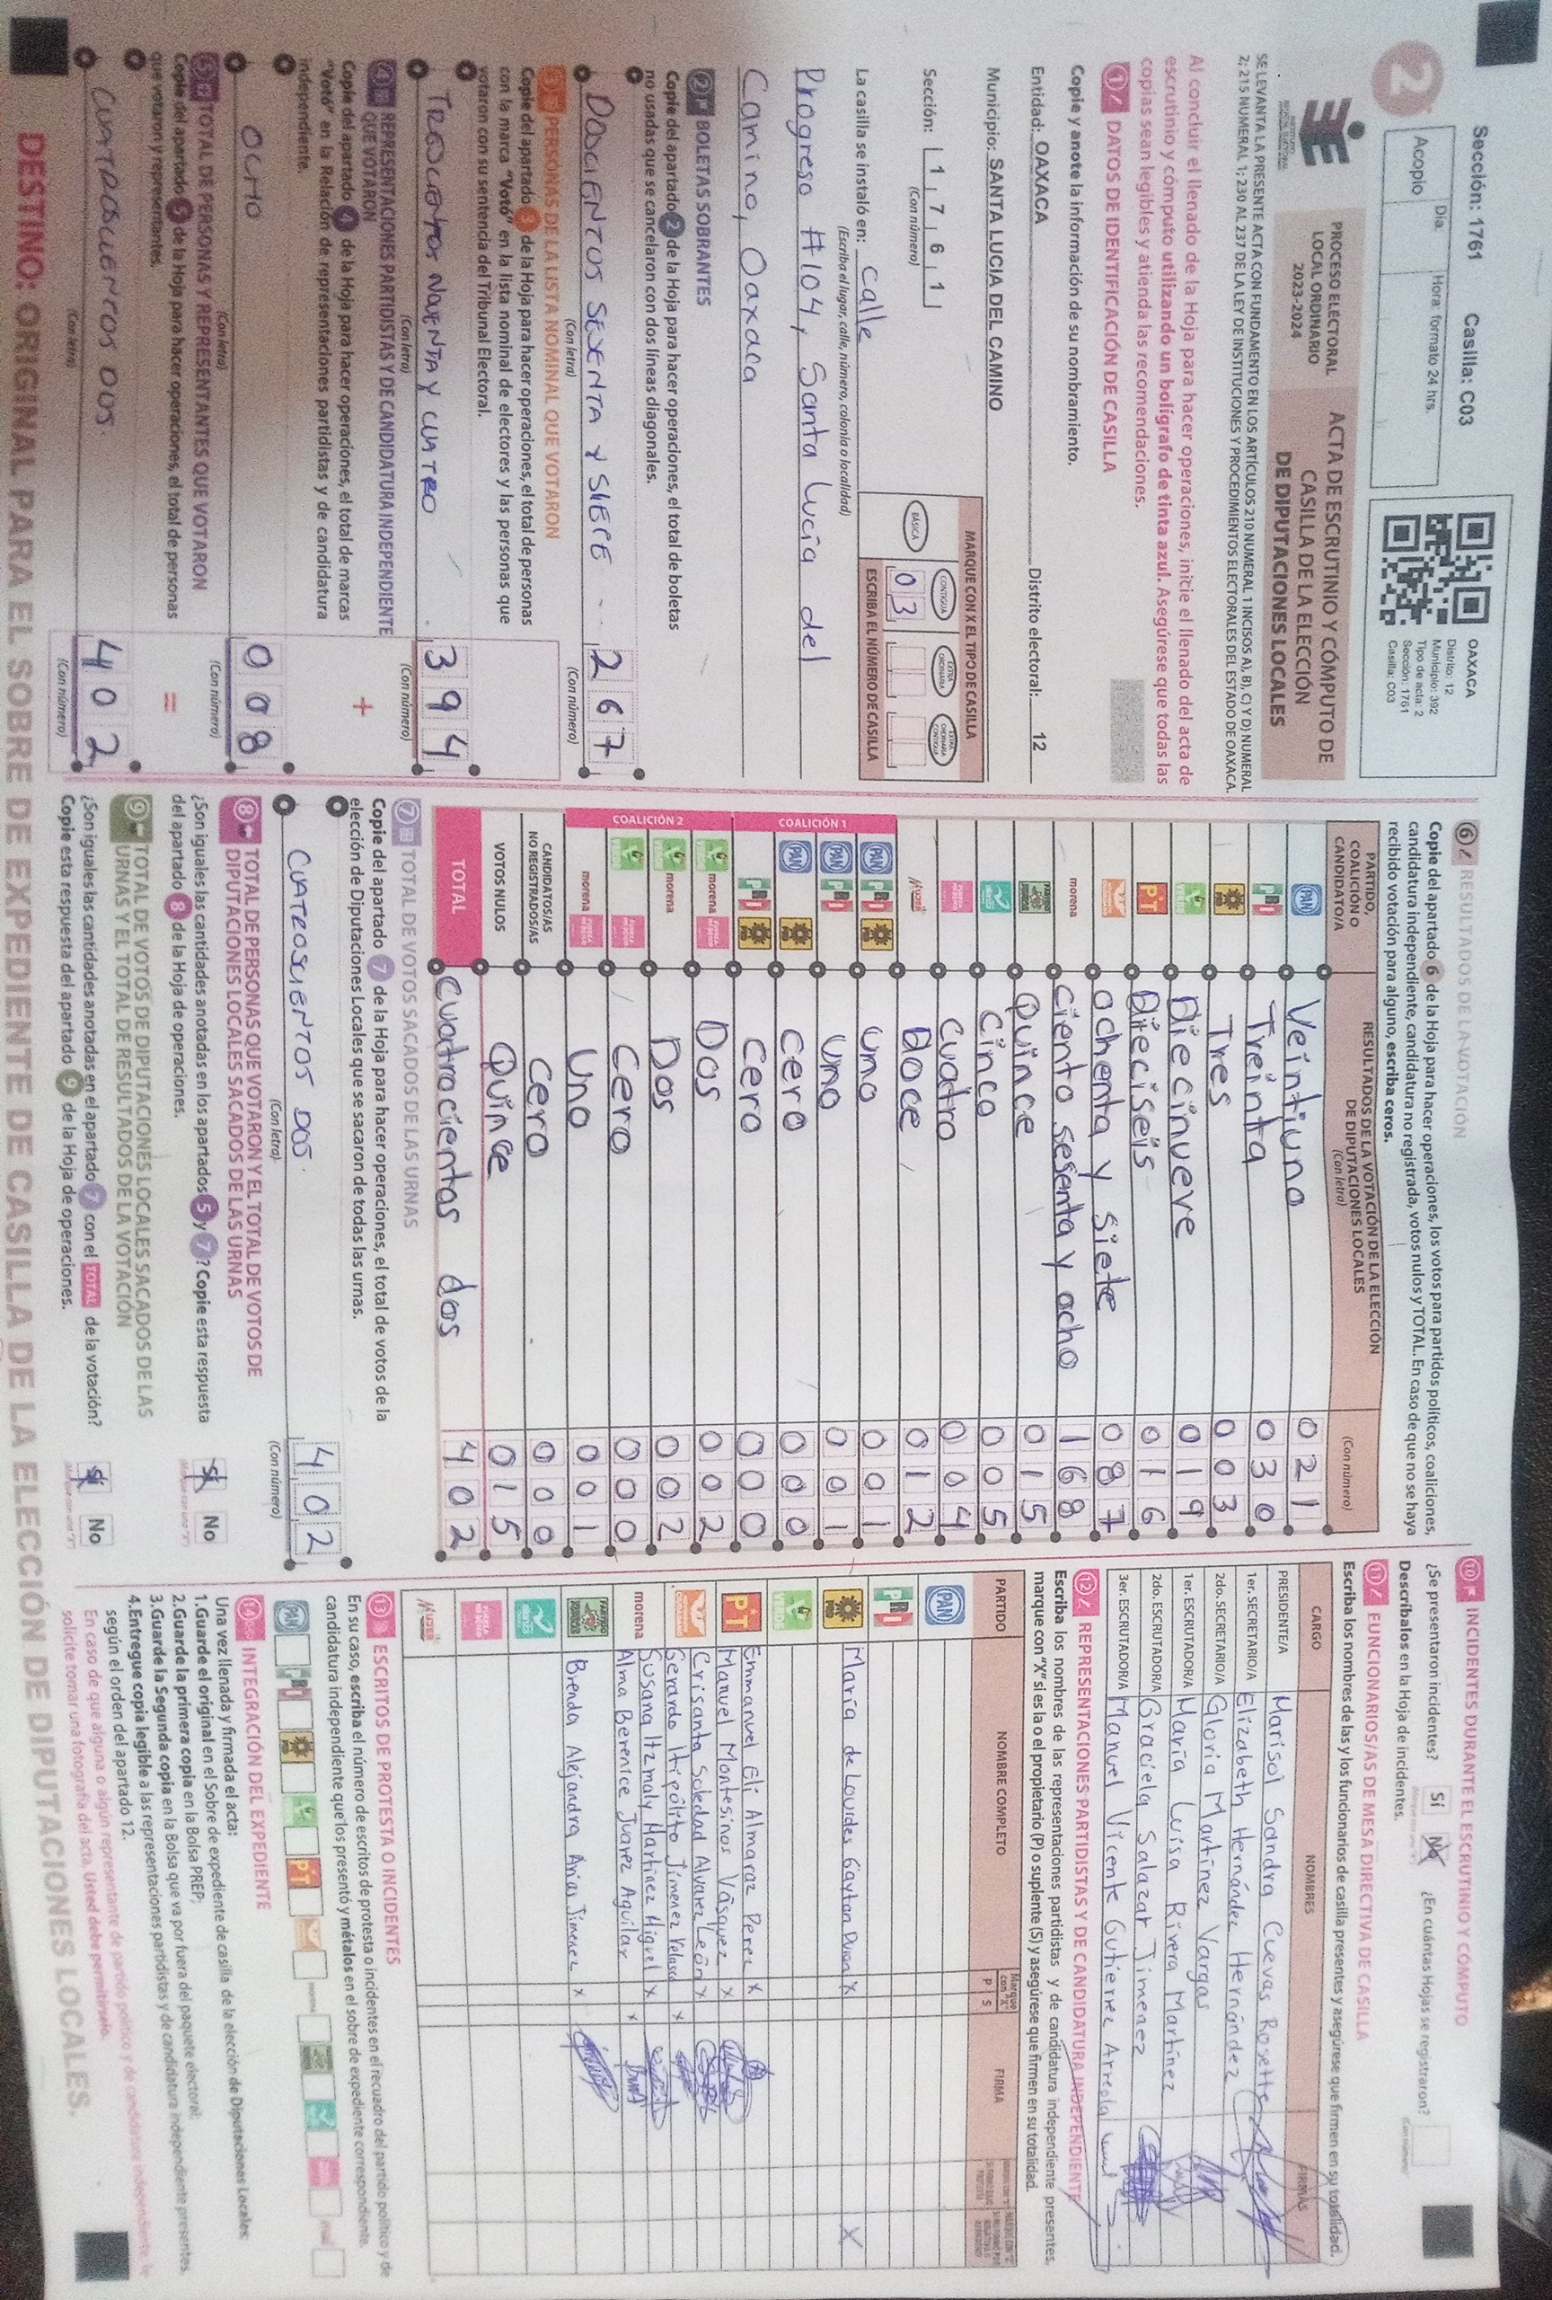 Sección: 1761 Casilla: C03
Día: Hora: formato 24 hrs.
Acopio
2
OAXACA
Distrito: 12
Municipio: 392
Tipo de acta: 2
Sección: 1761
Casilla: C03
PROCESO ELECTORAL
LOCAL ORDINARIO
2023-2024
ACTA DE ESCRUTINIO Y CÓMPUTO DE
CASILLA DE LA ELECCIÓN
DE DIPUTACIONES LOCALES
SE LEVANTA LA PRESENTE ACTA CON FUNDAMENTO EN LOS ARTÍCULOS 210 NUMERAL 1 INCISOS A), B), C) Y D) NUMERAL
2; 215 NUMERAL 1; 230 AL 237 DE LA LEY DE INSTITUCIONES Y PROCEDIMIENTOS ELECTORALES DEL ESTADO DE OAXACA.
Al concluir el llenado de la Hoja para hacer operaciones, inicie el llenado del acta de
escrutinio y cómputo utilizando un bolígrafo de tinta azul. Asegúrese que todas las
copias sean legibles y atienda las recomendaciones.
1 DATOS DE IDENTIFICACIÓN DE CASILLA
Copie y anote la información de su nombramiento.
Entidad: OAXACA Distrito electoral: 12
Municipio: SANTA LUCIA DEL CAMINO
Sección: 1 7 6 1
(Con número)
MARQUE CON X EL TIPO DE CASILLA
BÁSICA CONTIGUA EXTRA ORDINARIA EXTRA ORDINARIA CONTIGUA
03
ESCRIBA EL NÚMERO DE CASILLA
La casilla se instaló en: calle
(Escriba el lugar, calle, número, colonia o localidad)
Progreso #104, Santa Lucía del
Camino, Oaxaca
2 BOLETAS SOBRANTES
Copie del apartado 2 de la Hoja para hacer operaciones, el total de boletas
no usadas que se cancelaron con dos líneas diagonales.
DOCIENTOS SESENTA Y SIETE 267
(Con letra) (Con número)
3 PERSONAS DE LA LISTA NOMINAL QUE VOTARON
Copie del apartado 3 de la Hoja para hacer operaciones, el total de personas
con la marca "Votó" en la lista nominal de electores y las personas que
votaron con su sentencia del Tribunal Electoral.
394
(Con letra) (Con número)
4 REPRESENTACIONES PARTIDISTAS Y DE CANDIDATURA INDEPENDIENTE
QUE VOTARON
Copie del apartado 4 de la Hoja para hacer operaciones, el total de marcas
"Votó" en la Relación de representaciones partidistas y de candidatura
independiente.
+
OCHO 008
(Con letra) (Con número)
5 TOTAL DE PERSONAS Y REPRESENTANTES QUE VOTARON
Copie del apartado 5 de la Hoja para hacer operaciones, el total de personas
que votaron y representantes.
=
CUATROSCIENTOS DOS 402
(Con letra) (Con número)
6 RESULTADOS DE LA VOTACIÓN
Copie del apartado 6 de la Hoja para hacer operaciones, los votos para partidos políticos, coaliciones,
candidatura independiente, candidatura no registrada, votos nulos y TOTAL. En caso de que no se haya
recibido votación para alguno, escriba ceros.
PARTIDO,
COALICIÓN O
CANDIDATO/A
RESULTADOS DE LA VOTACIÓN DE LA ELECCIÓN
DE DIPUTACIONES LOCALES
(Con letra) (Con número)
PAN Veintiuno 021
PRI Treinta 030
PRD Tres 003
VERDE Diecinueve 019
PT Dieciseis 016
ochenta y siete 087
morena ciento sesenta y ocho 168
Quince 015
cinco 005
cuatro 004
MUJER doce 012
COALICIÓN 1
PAN PRI PRD uno 001
PAN PRI uno 001
PAN PRD cero 000
PRI PRD cero 000
COALICIÓN 2
VERDE morena Dos 002
VERDE morena Dos 002
VERDE Cero 000
morena Uno 001
CANDIDATOS/AS
NO REGISTRADOS/AS cero 000
VOTOS NULOS Quince 015
TOTAL Cuatrocientos dos 402
7 TOTAL DE VOTOS SACADOS DE LAS URNAS
Copie del apartado 7 de la Hoja para hacer operaciones, el total de votos de la
elección de Diputaciones Locales que se sacaron de todas las urnas.
CUATROSCIENTOS DOS 402
(Con letra) (Con número)
8 TOTAL DE PERSONAS QUE VOTARON Y EL TOTAL DE VOTOS DE
DIPUTACIONES LOCALES SACADOS DE LAS URNAS
¿Son iguales las cantidades anotadas en los apartados 5 y 7? Copie esta respuesta
del apartado 8 de la Hoja de operaciones.
Sí No
9 TOTAL DE VOTOS DE DIPUTACIONES LOCALES SACADOS DE LAS
URNAS Y EL TOTAL DE RESULTADOS DE LA VOTACIÓN
¿Son iguales las cantidades anotadas en el apartado 7 con el TOTAL de la votación?
Copie esta respuesta del apartado 9 de la Hoja de operaciones.
Sí No
10 INCIDENTES DURANTE EL ESCRUTINIO Y CÓMPUTO
¿Se presentaron incidentes? Sí No ¿En cuántas Hojas se registraron?
Descríbalos en la Hoja de incidentes.
11 FUNCIONARIOS/AS DE MESA DIRECTIVA DE CASILLA
Escriba los nombres de las y los funcionarios de casilla presentes y asegúrese que firmen en su totalidad.
CARGO NOMBRES FIRMAS
PRESIDENTE/A Marisol Sandra Cuevas Rosette
1er. SECRETARIO/A Elizabeth Hernández Hernández
2do. SECRETARIO/A Gloria Martínez Vargas
1er. ESCRUTADOR/A María Luisa Rivera Martínez
2do. ESCRUTADOR/A Graciela Salazar Jimenez
3er. ESCRUTADOR/A Manuel Vicente Gutierrez Arreola
12 REPRESENTACIONES PARTIDISTAS Y DE CANDIDATURA INDEPENDIENTE
Escriba los nombres de las representaciones partidistas y de candidatura independiente presentes,
marque con "X" si es la o el propietario (P) o suplente (S) y asegúrese que firmen en su totalidad.
PARTIDO NOMBRE COMPLETO Marque con "X" P S FIRMA
PAN
PRI
PRD María de Lourdes Gaytan Duran X X
VERDE
PT Emmanuel Elí Almaraz Perez X
Manuel Montesinos Vásquez X
Crisanta Soledad Alvarez León X
Gerardo Hipólito Jimenez Velasco X
morena Susana Itzmaly Martínez Miguel X
Alma Berenice Juarez Aguilar X
Brenda Alejandra Arias Jimenez X
MUJER
13 ESCRITOS DE PROTESTA O INCIDENTES
En su caso, escriba el número de escritos de protesta o incidentes en el recuadro del partido político y de
candidatura independiente que los presentó y métalos en el sobre de expediente correspondiente.
PAN PRI PRD VERDE PT morena
14 INTEGRACIÓN DEL EXPEDIENTE
Una vez llenada y firmada el acta:
1.Guarde el original en el Sobre de expediente de casilla de la elección de Diputaciones Locales;
2.Guarde la primera copia en la Bolsa PREP;
3.Guarde la Segunda copia en la Bolsa que va por fuera del paquete electoral;
4.Entregue copia legible a las representaciones partidistas y de candidatura independiente presentes
según el orden del apartado 12.
En caso de que alguna o algún representante de partido político y de candidatura independiente, le
solicite tomar una fotografía del acta, Usted debe permitírselo.
DESTINO: ORIGINAL PARA EL SOBRE DE EXPEDIENTE DE CASILLA DE LA ELECCIÓN DE DIPUTACIONES LOCALES.